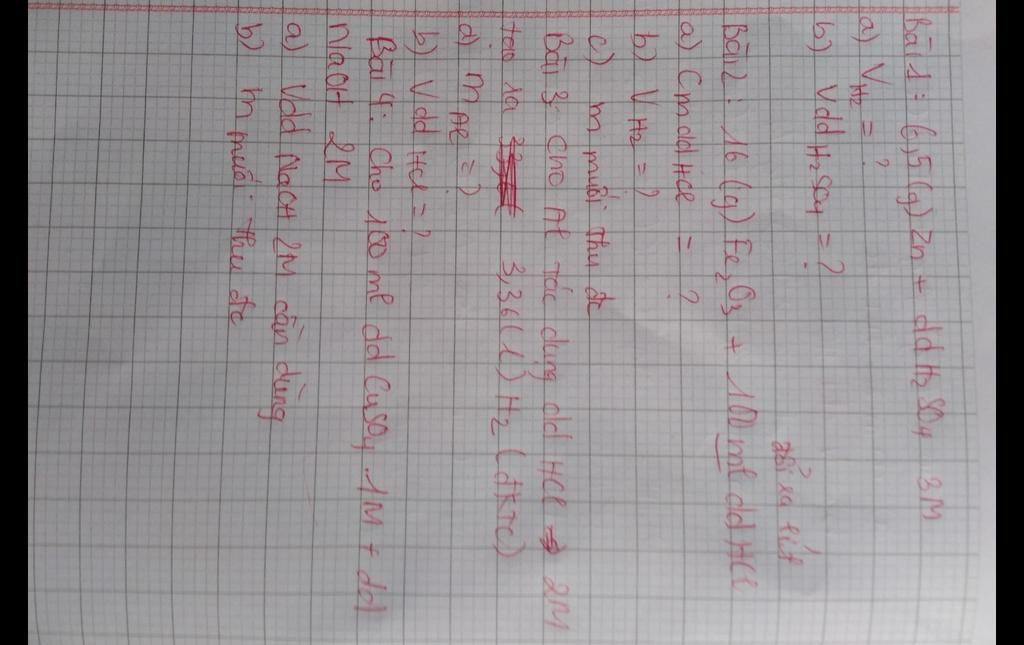 Bài 1: 6,5 (g) Zn + dd H₂SO₄ 3M
a) V H₂ = ?
b) Vdd H₂SO₄ = ?
đổi ra lít
Bài 2: 16 (g) Fe₂O₃ + 100 ml dd HCl
a) Cm dd HCl = ?
b) V H₂ = ?
c) m muối thu đc
Bài 3: Cho Al tác dụng dd HCl 2M
tạo ra 3,36 (l) H₂ (đktc)
a) m Al = ?
b) Vdd HCl = ?
Bài 4: Cho 100 ml dd CuSO₄ 1M + dd
NaOH 2M
a) Vdd NaOH 2M cần dùng
b) m muối thu đc